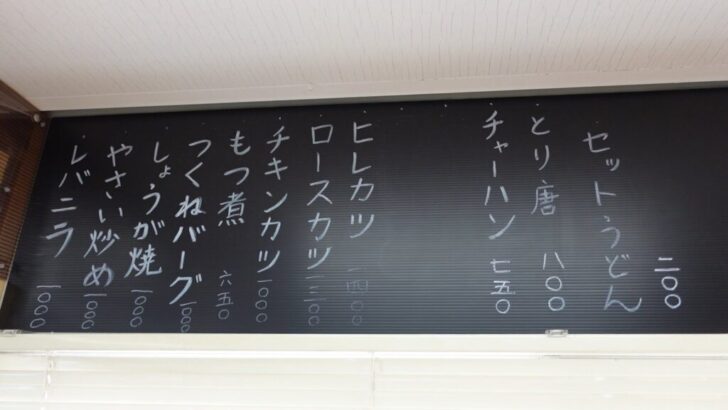 セットうどん 二〇〇
とり唐 八〇〇
チャーハン 七五〇
ヒレカツ 一四〇〇
ロースカツ 一三〇〇
チキンカツ 一〇〇〇
もつ煮 六五〇
つくねバーグ 一〇〇〇
しょうが焼 一〇〇〇
やさい炒め 一〇〇〇
レバニラ 一〇〇〇